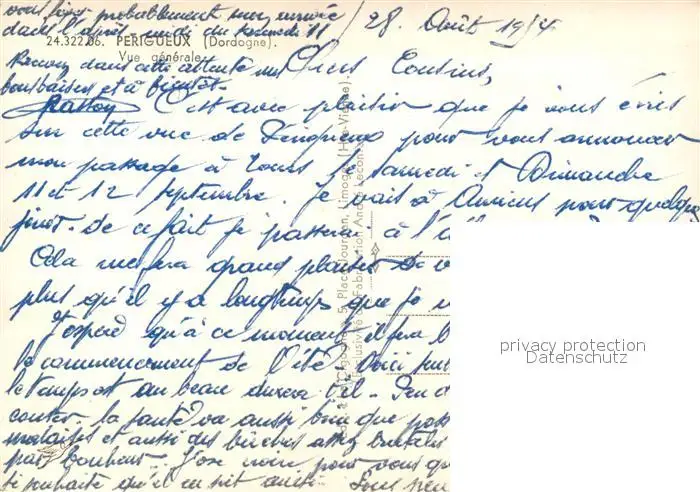 28. Août 1954
vous ferez probablement sur ensuite
dans l'après-midi du samedi 11
24.322.06. PERIGUEUX (Dordogne).
Vue générale.
Recevez dans cette attente mes
bons baisers et à bientôt.
Gaston
Chers Cousins,
C'est avec plaisir que je vous écris
sur cette vue de Périgueux pour vous annoncer
mon passage à Tours le samedi et Dimanche
11 et 12 septembre. Je vais à Amiens pour quelques
jours. De ce fait je passerai à l'a
Cela me fera grand plaisir de v
plus qu'il y a longtemps que je
J'espère qu'à ce moment il fera b
le commencement de l'été. Voici
le temps est au beau durera t'il. Peu d
conter. La santé va aussi bien que pos
malaises et aussi des bien
par bonheur... J'ose croire pour vous qu
je souhaite qu'il en soit ainsi. Vous
Place Jourdan, Limoges (Hte-Vienne).
Exclusivité de Fabrication André Leconte
privacy protection
Datenschutz